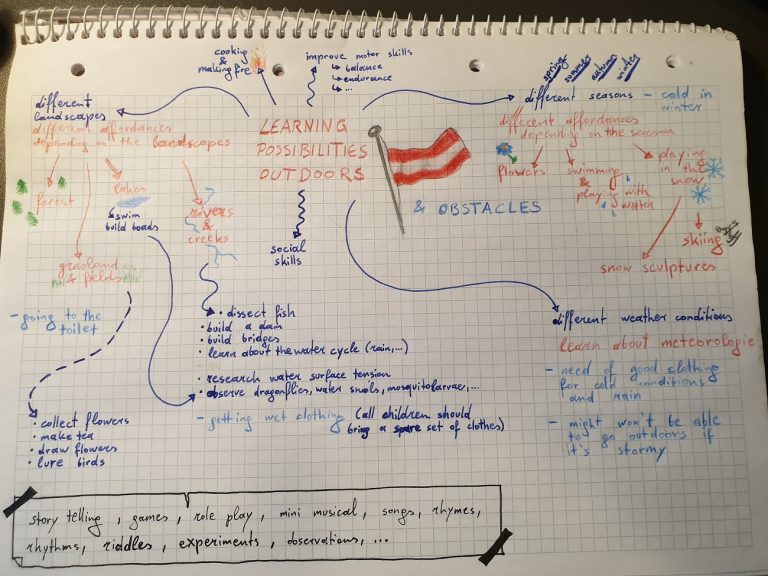 cooking
&
making fire
improve motor skills
↳ balance
↳ endurance
↳ ...
spring
summer
autumn
winter
different
landscapes
different affordances
depending on the landscapes
forest
lakes
↳ swim
build boads
rivers
&
creeks
grasland
& fields
LEARNING
POSSIBILITIES
OUTDOORS
& OBSTACLES
social
skills
different seasons - cold in
winter
different affordances
depending on the season
flowers
swimming
&
playing with
water
playing
in the
snow
skiing
snow sculptures
- going to the
toilet
• dissect fish
• build a dam
• build bridges
• learn about the water cycle (rain,...)
• research water surface tension
• observe dragonflies, water snails, mosquitolarvae,...
- getting wet clothing (all children should
bring a spare set of clothes)
different weather conditions
learn about meteorologie
- need of good clothing
for cold conditions
and rain
- might won't be able
to go outdoors if
it's stormy
• collect flowers
• make tea
• draw flowers
• lure birds
story telling, games, role play, mini musical, songs, rhymes,
rhythms, riddles, experiments, observations, ...